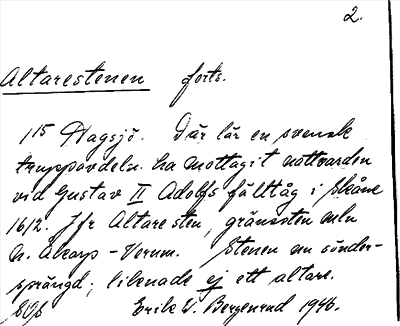 2.
Altarestenen forts.
1 15 Hagsjö. Där lär en svensk
truppavdeln. ha mottagit nattvarden
vid Gustav II Adolfs fälttåg i Skåne
1612. Jfr Altaresten, gränssten mln
N. Åkarp - Verum. Stenen nu sönder-
sprängd; liknade ej ett altare.
Erik V. Bergenrud 1946.